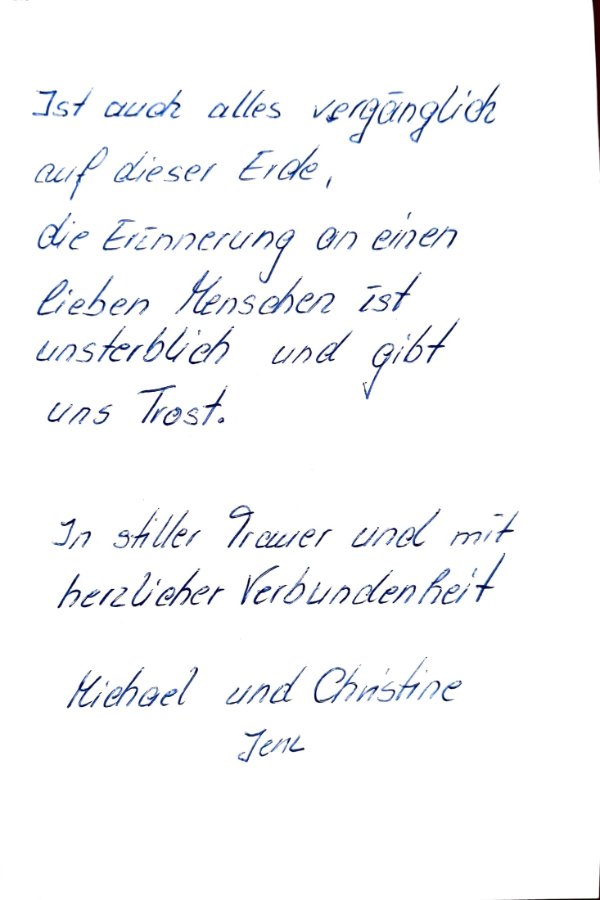 Ist auch alles vergänglich
auf dieser Erde,
die Erinnerung an einen
lieben Menschen ist
unsterblich und gibt
uns Trost.
In stiller Trauer und mit
herzlicher Verbundenheit
Michael und Christine